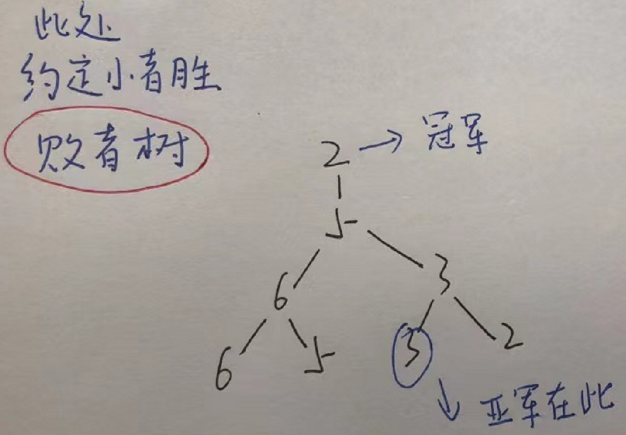 此处
约定小者胜
败者树
2 → 冠军
5
6 3
6 5 3 2
↓ 亚军在此